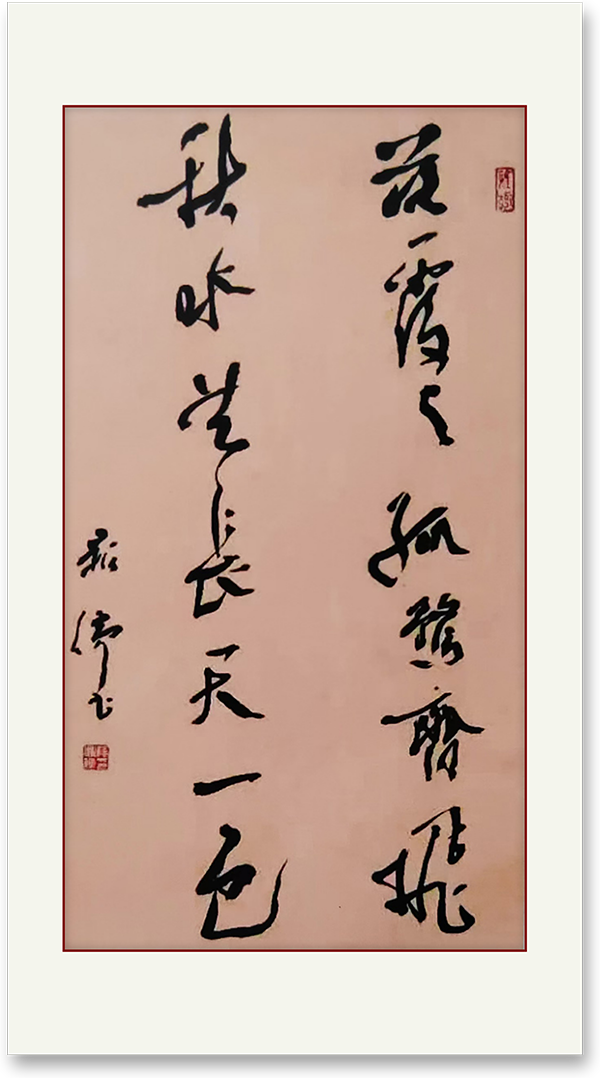 落霞与孤鶩齊飛
秋水共長天一色